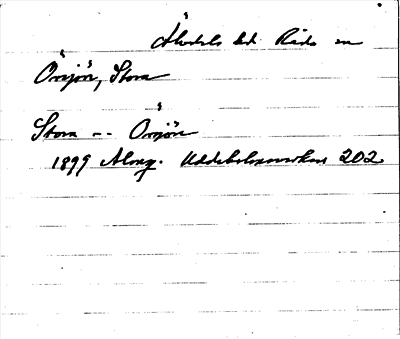 Älvdals hd. Råda sn
Örsjön, Stora
Stora -- Örsjön
1899 Almq. Uddeholmsverken 202